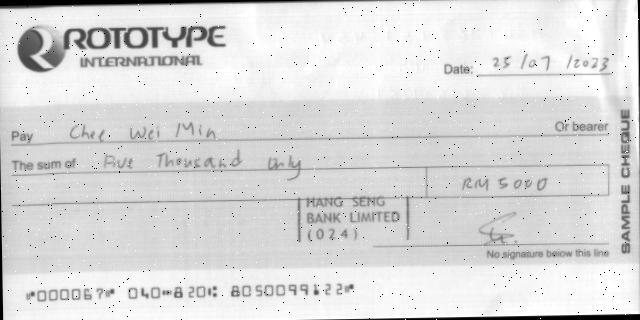 ROTOTYPE
INTERNATIONAL
Date: 25/07/2023
Pay Chee Wei Min Or bearer
The sum of Five Thousand Only
RM 5000
HANG SENG
BANK LIMITED
(024)
No signature below this line
SAMPLE CHEQUE
"000067" 040-820: 8050099122"